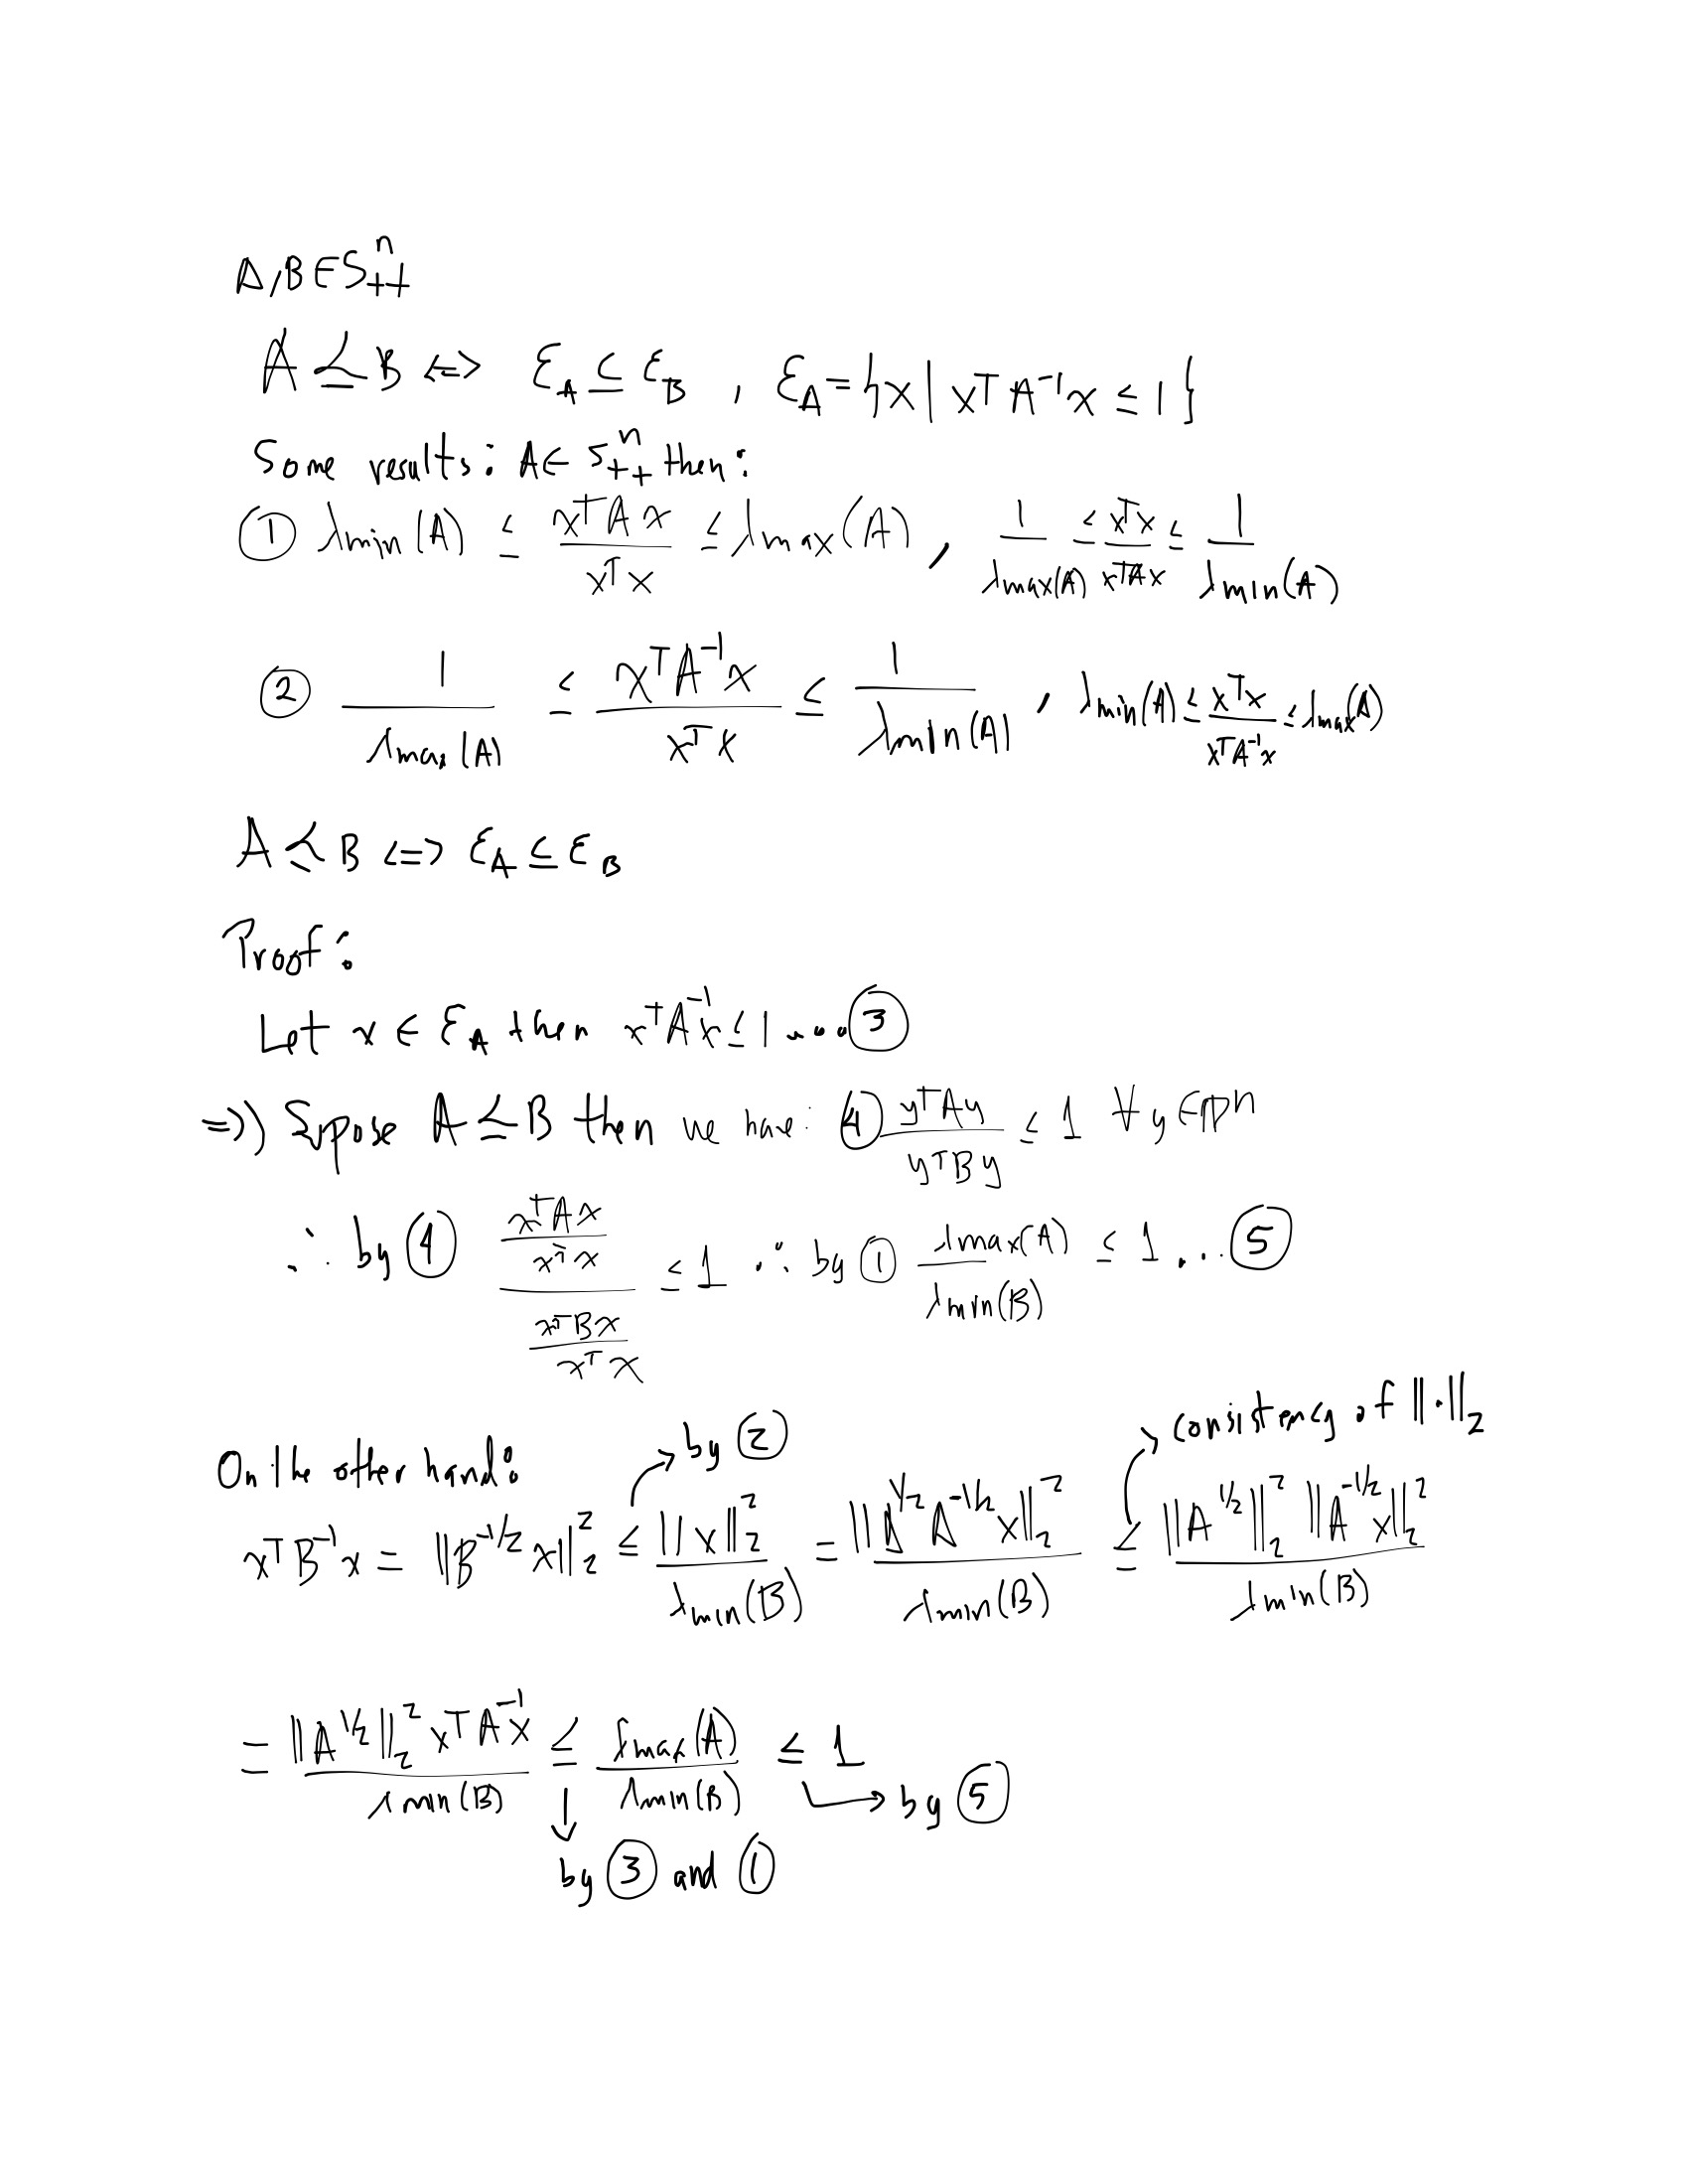 A,B∈S₊₊ⁿ
A ⪯ B ⇔ ℰ_A ⊆ ℰ_B , ℰ_A = {x | xᵀA⁻¹x ≤ 1}
Some results: A∈ S₊₊ⁿ then:
① λmin(A) ≤ xᵀAx / xᵀx ≤ λmax(A) , 1 / λmax(A) ≤ xᵀx / xᵀAx ≤ 1 / λmin(A)
② 1 / λmax(A) ≤ xᵀA⁻¹x / xᵀx ≤ 1 / λmin(A) , λmin(A) ≤ xᵀx / xᵀA⁻¹x ≤ λmax(A)
A ⪯ B ⇔ ℰ_A ⊆ ℰ_B
Proof:
Let x ∈ ℰ_A then xᵀA⁻¹x ≤ 1 .... ③
⇒)) Supose A ⪯ B then we have: ④ yᵀAy / yᵀBy ≤ 1 ∀y∈ℝⁿ
∴ by ④ (xᵀAx / xᵀx) / (xᵀBx / xᵀx) ≤ 1 ∴ by ① λmax(A) / λmin(B) ≤ 1 ... ⑤
On the other hand: → by ② → consistency of ‖·‖₂
xᵀB⁻¹x = ‖B^{-1/2}x‖₂² ≤ ‖x‖₂² / λmin(B) = ‖A^{1/2}A^{-1/2}x‖₂² / λmin(B) ≤ ‖A^{1/2}‖₂² ‖A^{-1/2}x‖₂² / λmin(B)
= ‖A^{1/2}‖₂² xᵀA⁻¹x / λmin(B) ≤ λmax(A) / λmin(B) ≤ 1
↳ by ⑤
↓ by ③ and ①